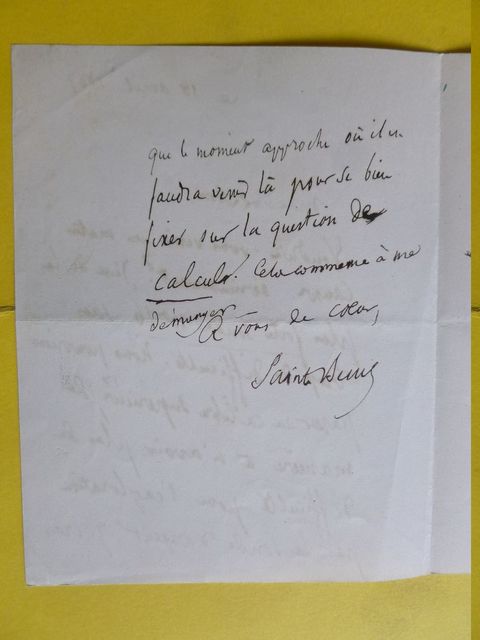 que le moment approche où il
faudra venir là pour se bien
fixer sur la question de
calculs. Cela commence à me
démanger
A vous de cœur,
Sainte Beuve